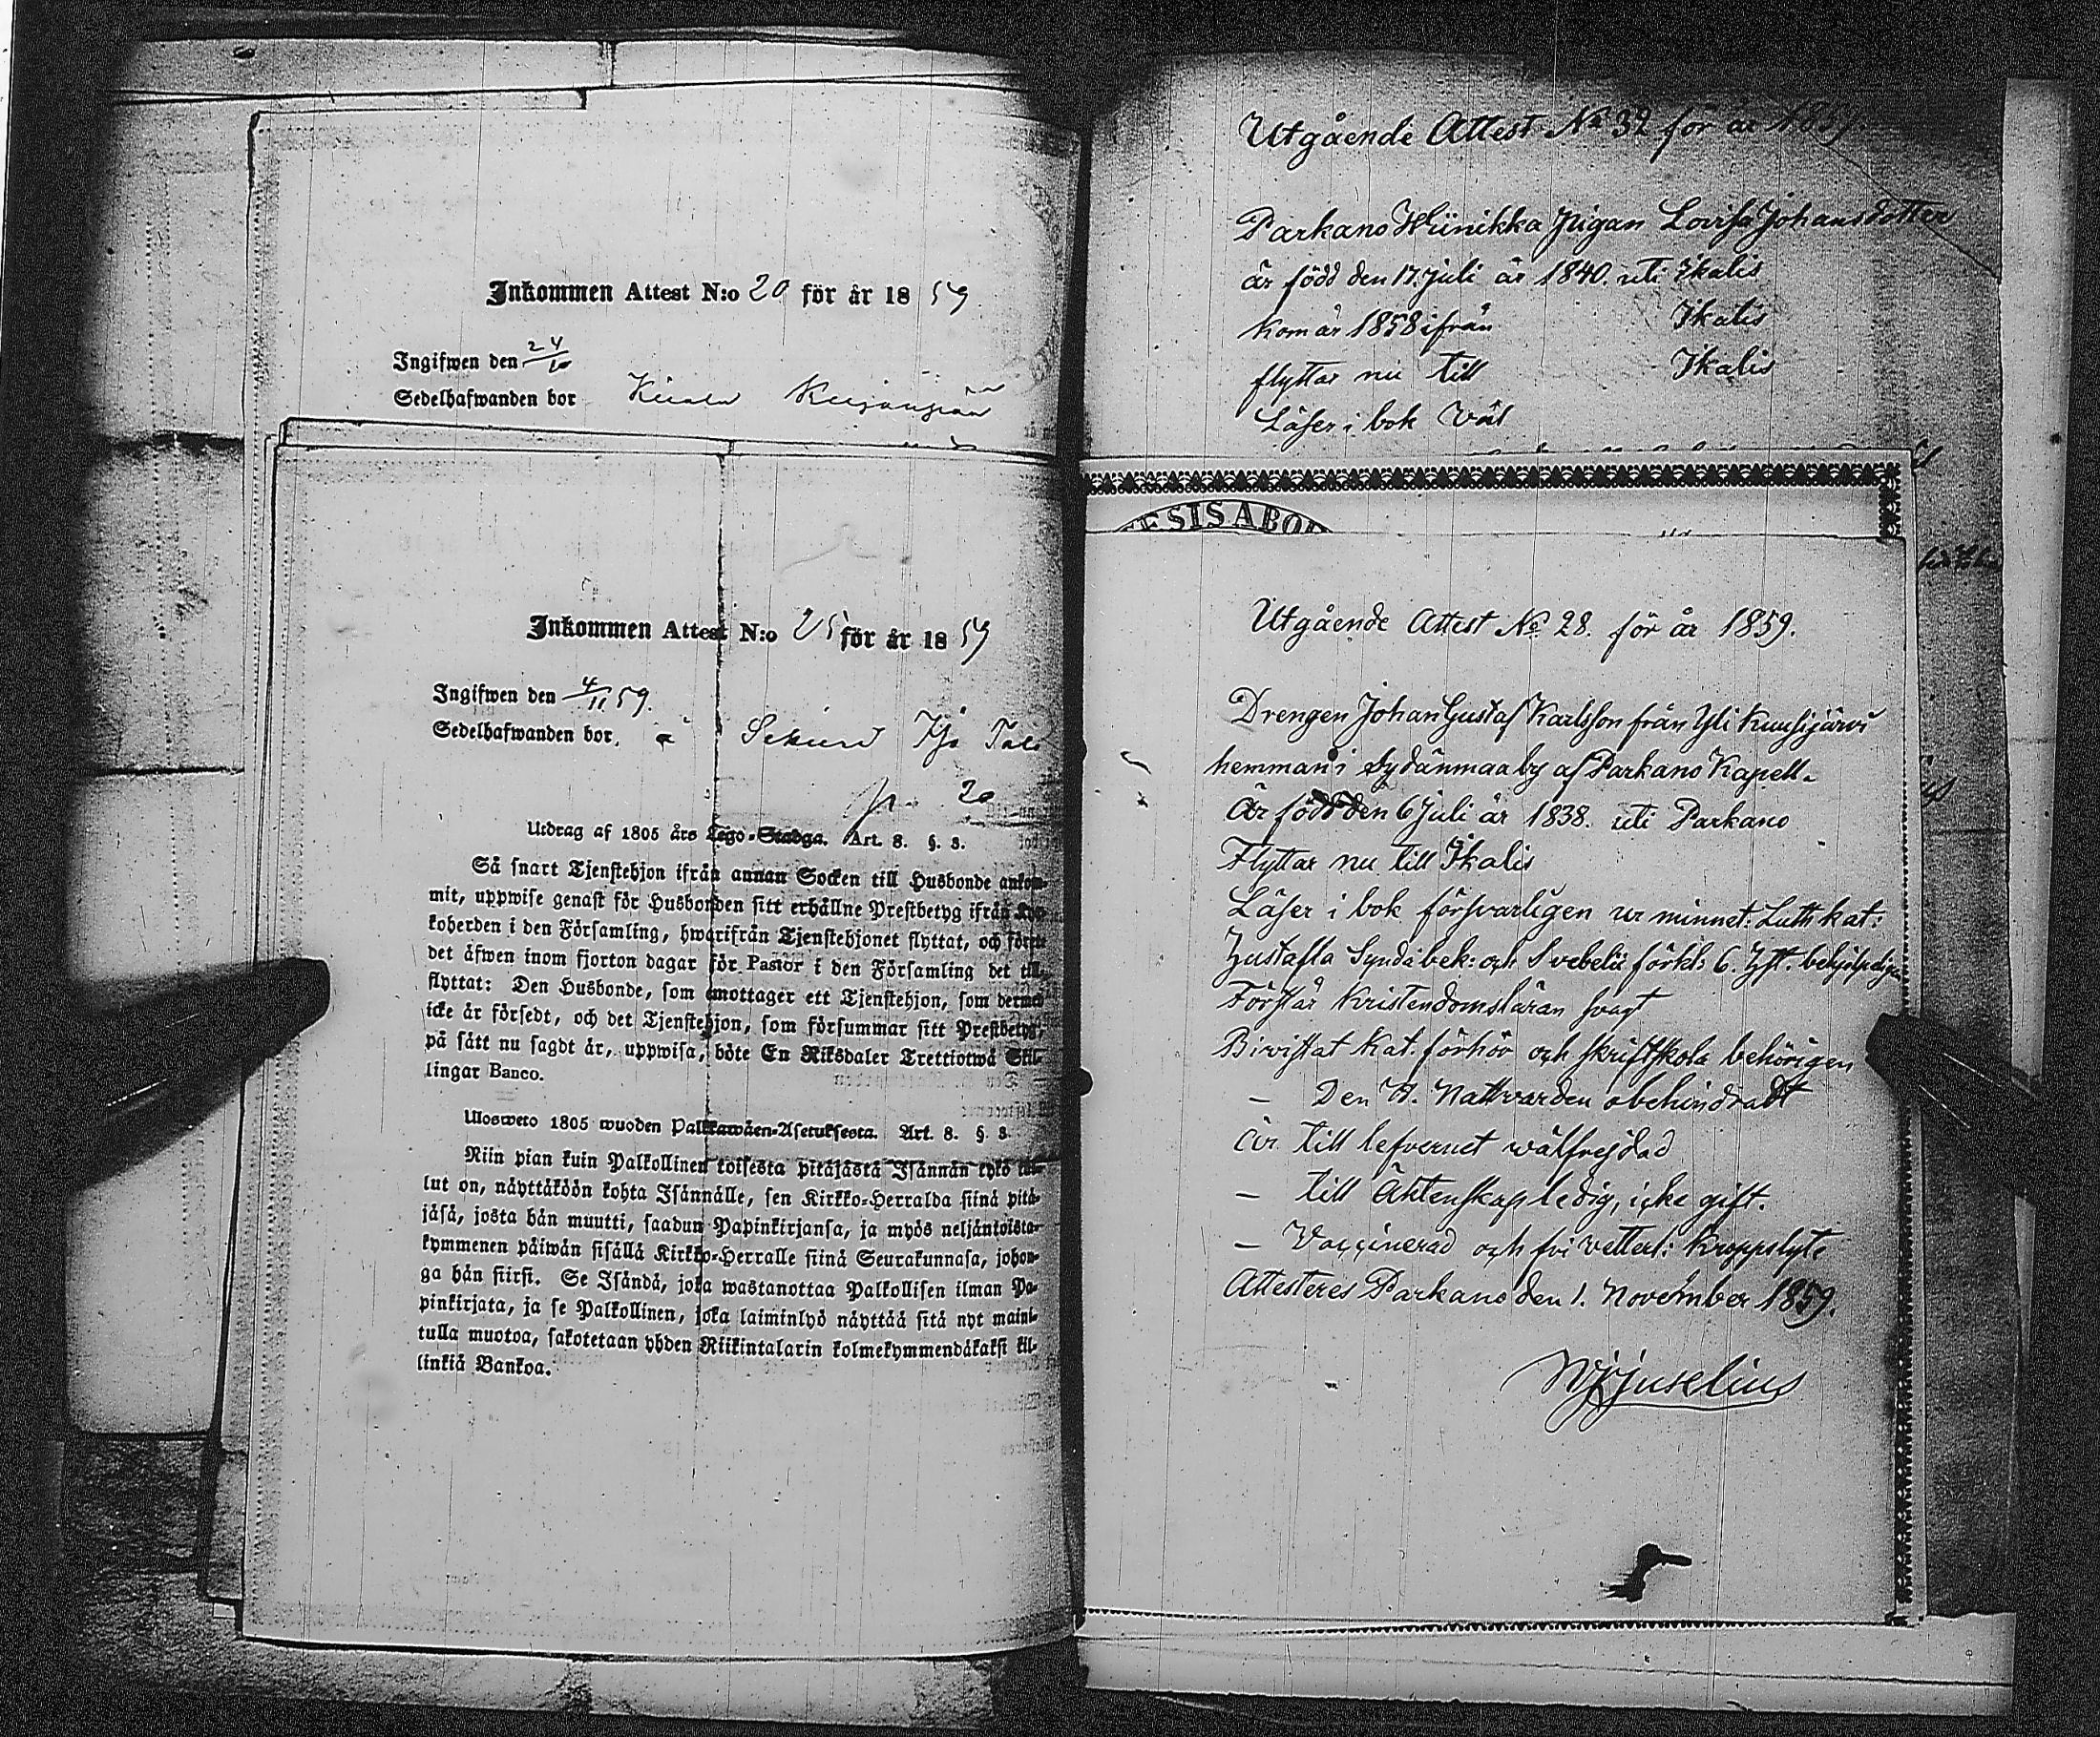 Inkommen Attest N:o 20 för år 1859
Ingifwen den 24/10
Sedelhafwanden bor
Inkommen Attest N:o 25 för år 1859
Ingifwen den 4/11 59.
Sedelhafwanden bor. a
p. 20
Utdrag af 1805 års Lego-Stadga. Art. 8. §. 3.
Så snart Tjenstehjon ifrån annan Socken till Husbonde ankom-
mit, uppwise genast för Husbonden sitt erhållne Prestbetyg ifrån Kyr-
koherden i den Församling, hwarifrån Tjenstehjonet flyttat, och förete
det äfwen inom fjorton dagar för Pastor i den Församling det till-
flyttat: Den Husbonde, som emottager ett Tjenstehjon, som dermed
icke är försedt, och det Tjenstehjon, som försummar sitt Prestbetyg,
på sätt nu sagdt är, uppwisa, böte En Riksdaler Trettiotwå Skil-
lingar Banco.
Ulosweto 1805 wuoden Palkkawäen-Asetuksesta. Art. 8. §. 3.
Niin pian kuin Palkollinen toisesta pitäjästä Isännän tykö tul-
lut on, näyttäköön kohta Isännälle, sen Kirkko-Herralda siinä pitä-
jäsä, josta hän muutti, saadun Papinkirjansa, ja myös neljäntoista-
kymmenen päiwän sisällä Kirkko-Herralle siinä Seurakunnasa, johon-
ga hän siirsi. Se Isändä, joka wastanottaa Palkollisen ilman Pa-
pinkirjata, ja se Palkollinen, joka laiminlyö näyttää sitä nyt maini-
tulla muotoa, sakotetaan yhden Riikintalarin kolmekymmendäkaksi kil-
linkiä Bankoa.
Utgående Attest No 32 för år 1859.
Parkano Wiinikka Pigan Lovisa Johansdotter
är född den 17. Juli år 1840. uti Ikalis
Kom år 1858 ifrån Ikalis
flyttar nu till Ikalis
Läser i bok väl
SIS ABO
Utgående Attest No 28. för år 1859.
Drengen Johan Gustaf Karlsson från Yli Kuusijärvi
hemman i Sydänmaa by af Parkano Kapell.
Är född den 6 Juli år 1838. uti Parkano
Flyttar nu till Ikalis
Läser i bok försvarligen ur minnet: Luth kat:
Gustafla Syndabek: och Svebelii förkl: 6. Hst. behjelpeligen
Förstår Kristendomsläran svagt
Bivistat Kat. förhör och skriftskola behörigen
— Den H. Nattvarden obehindradt
är till lefvernet wälfrejdad
— till Äktenskap ledig, icke gift.
— Vaccinerad och fri vetterl: kroppslyte
Attesteres Parkano den 1. November 1859.
Juselius